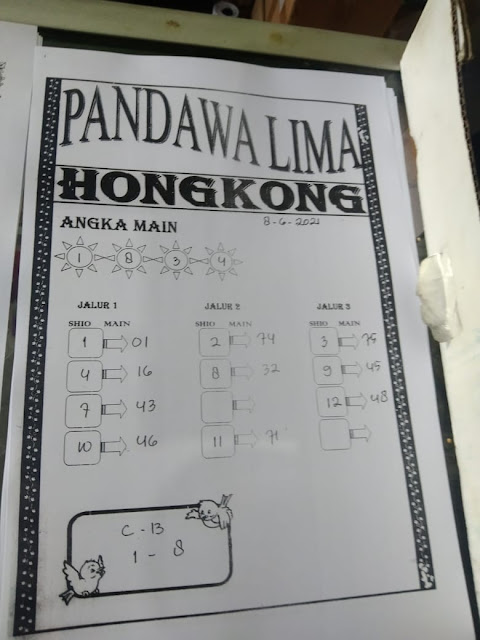 PANDAWA LIMA
HONGKONG
ANGKA MAIN 8-6-2021
1 8 3 4
JALUR 1 JALUR 2 JALUR 3
SHIO MAIN SHIO MAIN SHIO MAIN
1 01 2 74 3 75
4 16 8 32 9 45
7 43 12 48
10 46 11 71
C - 13
1 - 8